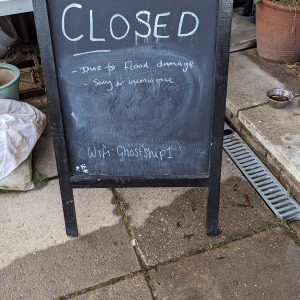 CLOSED
- Due to Flood damage
- Sorry for inconvenience
Wifi: Ghostship1